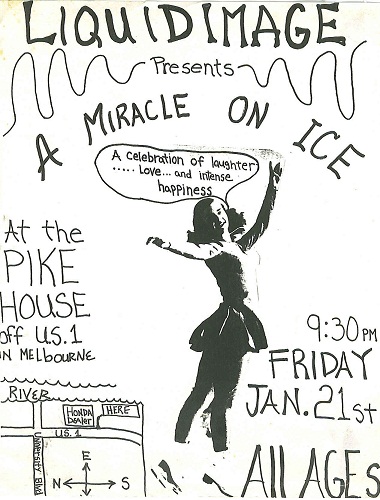 LIQUID IMAGE
Presents
A MIRACLE ON ICE
A celebration of laughter
..... Love... and intense
happiness
At the
PIKE
HOUSE
off U.S. 1
IN MELBOURNE
9:30 PM
FRIDAY
JAN. 21st
All AGES
RIVER
HONDA
Dealer
HERE
U.S. 1
University Blvd
E
N
S